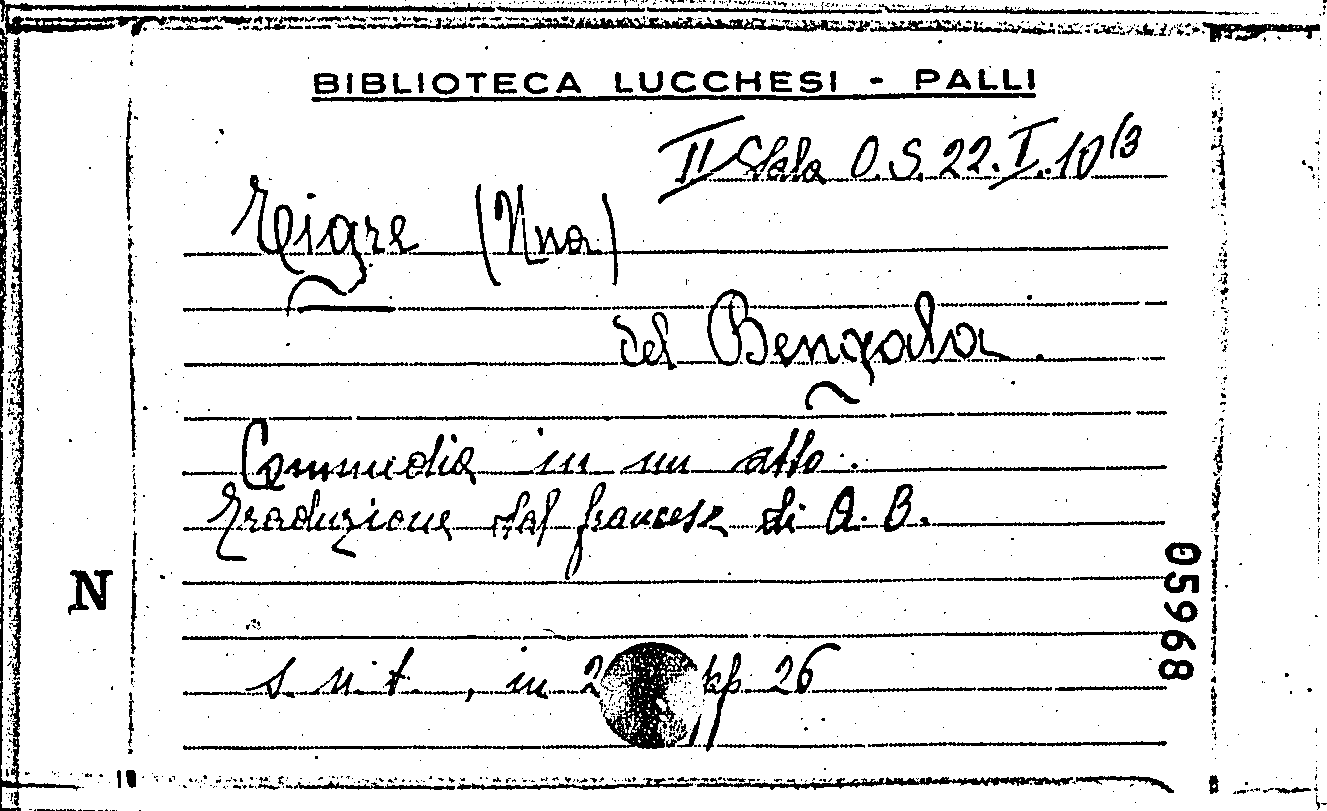 BIBLIOTECA LUCCHESI - PALLI
II Sala O.S. 22. I. 10/3
Tigre (Una)
del Bengala.
Commedia in un atto.
Traduzione dal francese di A. B.
N
05968
s. n. t., in 2 pp 26